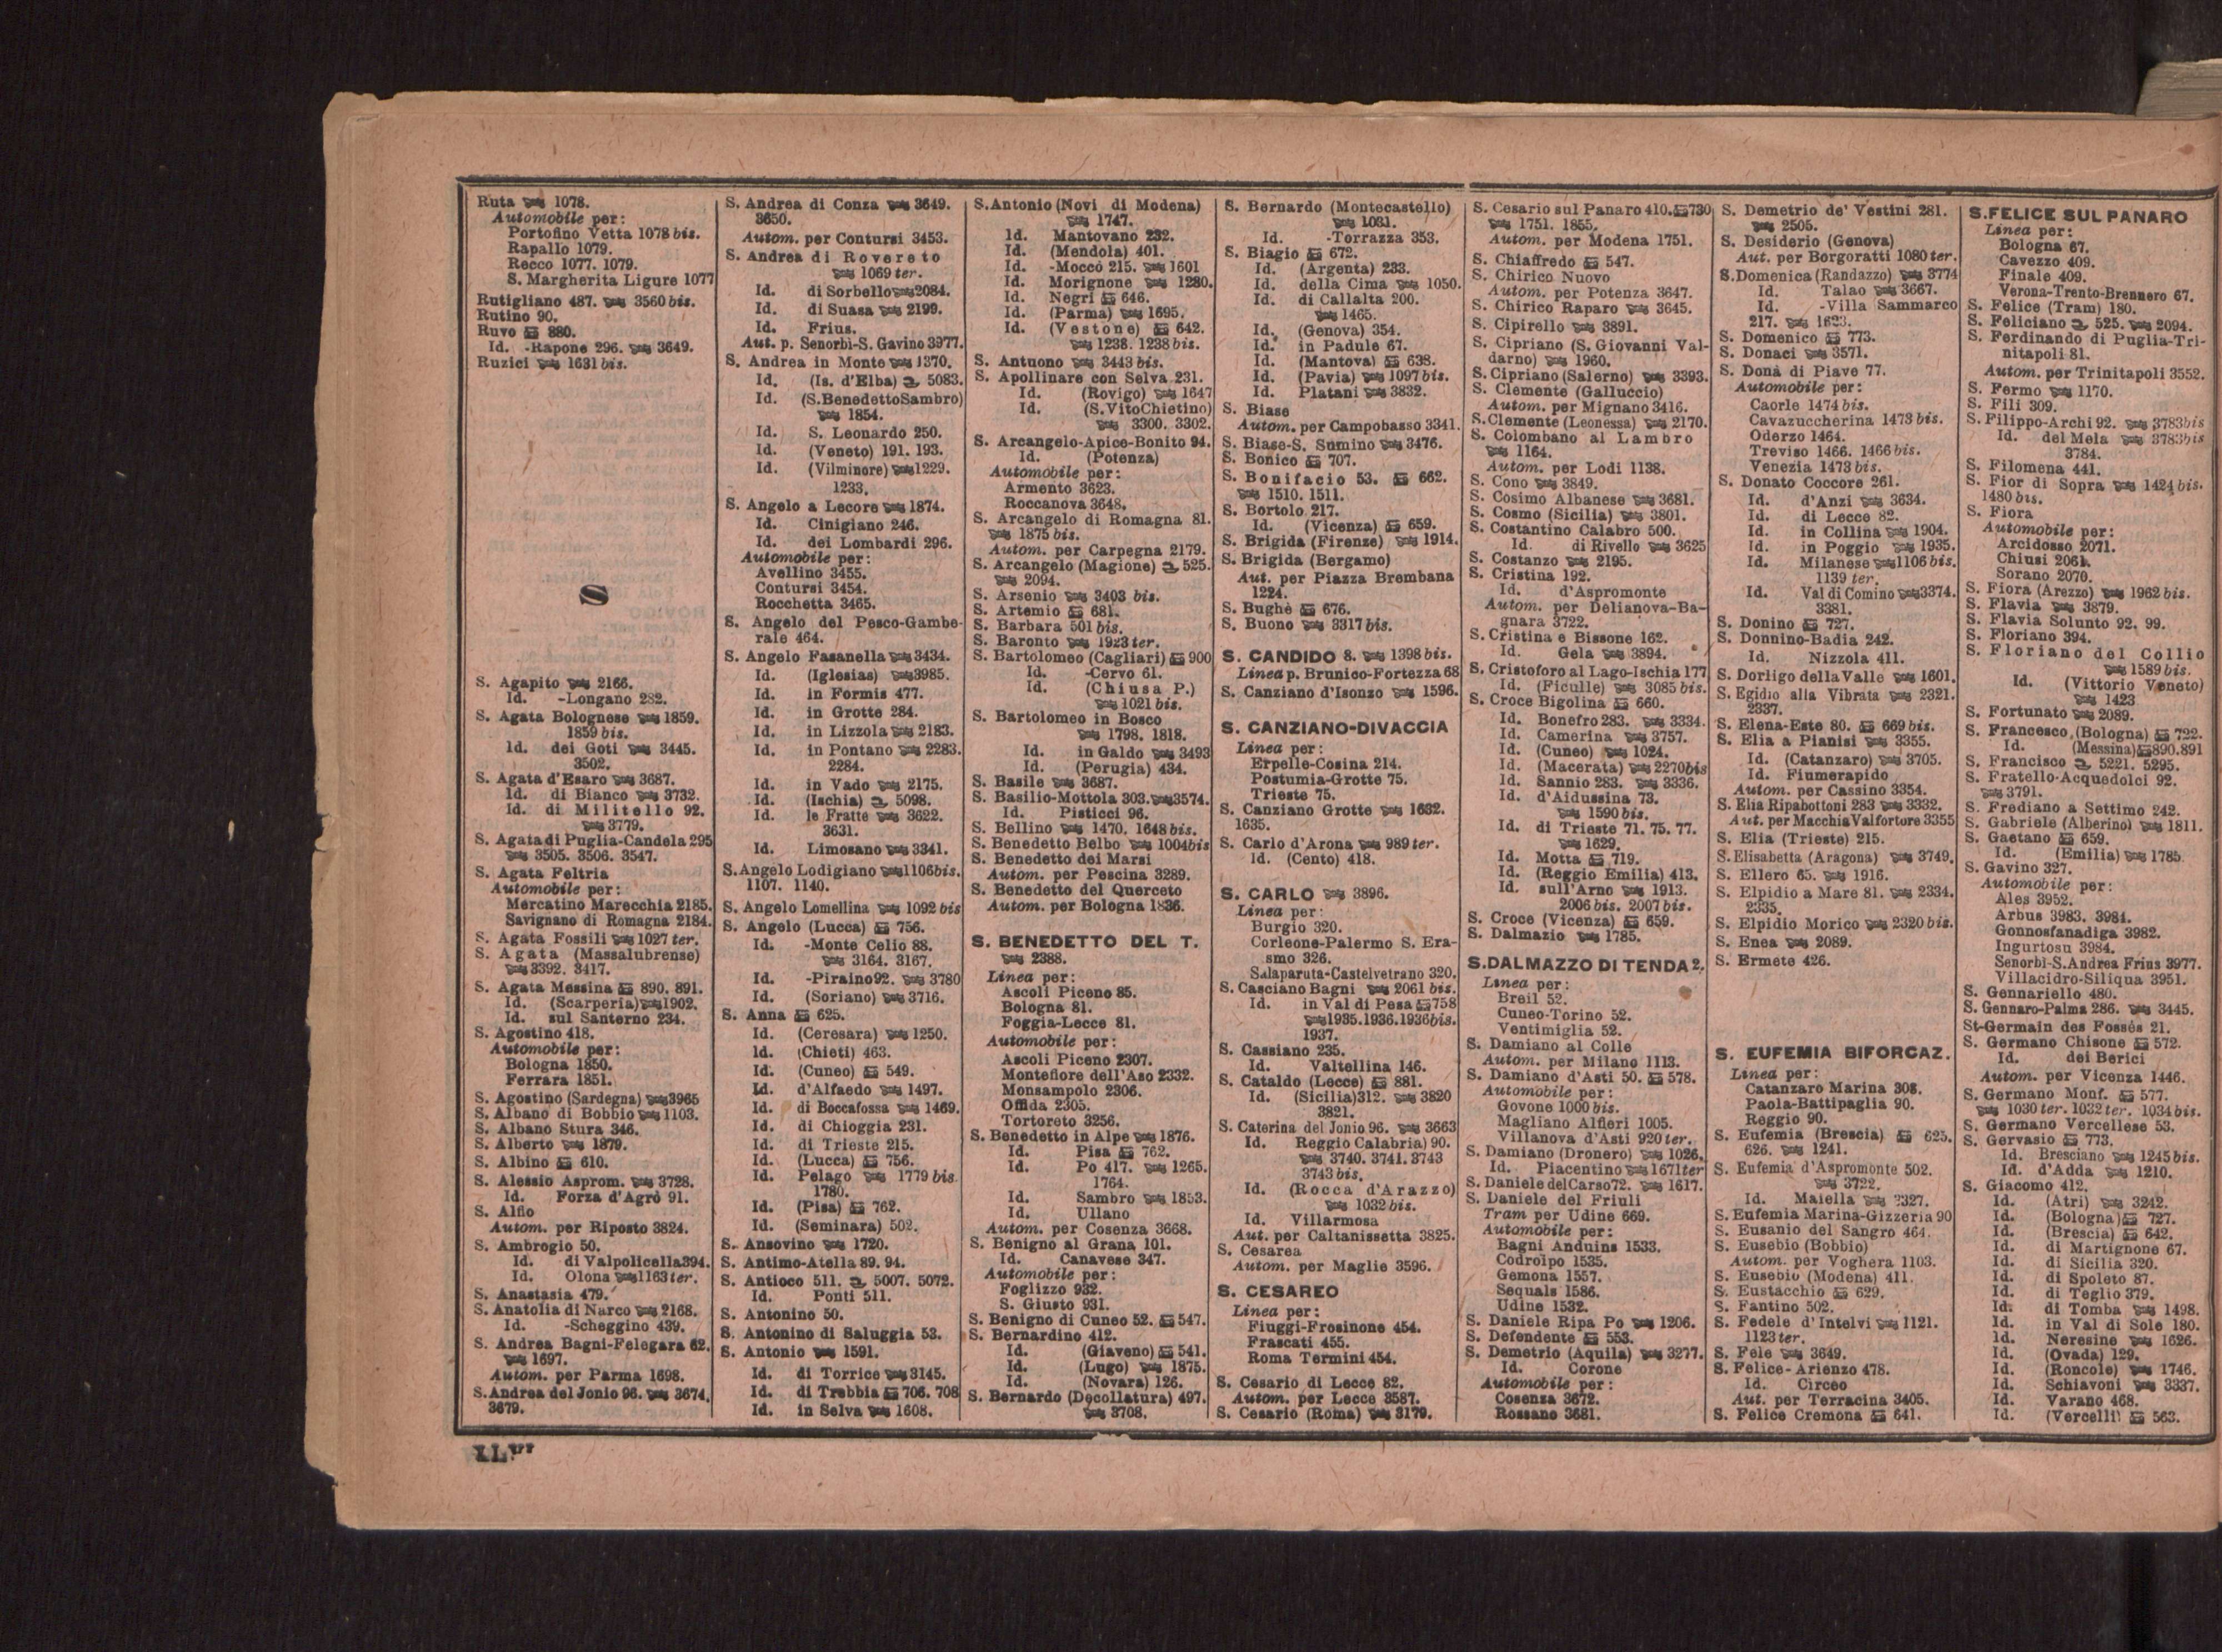 Ruta 1078.
Automobile per:
Portofino Vetta 1078 bis.
Rapallo 1079.
Recco 1077. 1079.
S. Margherita Ligure 1077
Rutigliano 487. 3560 bis.
Rutino 90.
Ruvo 880.
Id. -Rapone 296. 3649.
Ruzici 1631 bis.
S
S. Agapito 2166.
Id. -Longano 282.
S. Agata Bolognese 1859.
1859 bis.
Id. dei Goti 3445.
3502.
S. Agata d'Esaro 3687.
Id. di Bianco 3732.
Id. di Militello 92.
3779.
S. Agata di Puglia-Candela 295
3505. 3506. 3547.
S. Agata Feltria
Automobile per:
Mercatino Marecchia 2185.
Savignano di Romagna 2184.
S. Agata Fossili 1027 ter.
S. Agata (Massalubrense)
3392. 3417.
S. Agata Messina 890. 891.
Id. (Scarperia) 1902.
Id. sul Santerno 234.
S. Agostino 418.
Automobile per:
Bologna 1850.
Ferrara 1851.
S. Agostino (Sardegna) 3965
S. Albano di Bobbio 1103.
S. Albano Stura 346.
S. Alberto 1879.
S. Albino 610.
S. Alessio Asprom. 3728.
Id. Forza d'Agrò 91.
S. Alfio
Autom. per Riposto 3824.
S. Ambrogio 50.
Id. di Valpolicella 394.
Id. Olona 1163 ter.
S. Anastasia 479.
S. Anatolia di Narco 2168.
Id. -Scheggino 439.
S. Andrea Bagni-Felegara 62.
1697.
Autom. per Parma 1698.
S. Andrea del Jonio 96. 3674.
3679.
S. Andrea di Conza 3649.
3650.
Autom. per Contursi 3453.
S. Andrea di Rovereto
1069 ter.
Id. di Sorbello 2084.
Id. di Suasa 2199.
Id. Frius.
Aut. p. Senorbì-S. Gavino 3977.
S. Andrea in Monte 1370.
Id. (Is. d'Elba) 5083.
Id. (S. Benedetto Sambro)
1854.
Id. S. Leonardo 250.
Id. (Veneto) 191. 193.
Id. (Vilminore) 1229.
1233.
S. Angelo a Lecore 1874.
Id. Cinigiano 246.
Id. dei Lombardi 296.
Automobile per:
Avellino 3455.
Contursi 3454.
Rocchetta 3465.
S. Angelo del Pesco-Gambe-
rale 464.
S. Angelo Fasanella 3434.
Id. (Iglesias) 3985.
Id. in Formis 477.
Id. in Grotte 284.
Id. in Lizzola 2183.
Id. in Pontano 2283.
2284.
Id. in Vado 2175.
Id. (Ischia) 5098.
Id. le Fratte 3622.
3631.
Id. Limosano 3341.
S. Angelo Lodigiano 1106 bis.
1107. 1140.
S. Angelo Lomellina 1092 bis
S. Angelo (Lucca) 756.
Id. -Monte Celio 88.
3164. 3167.
Id. -Piraino 92. 3780
Id. (Soriano) 3716.
S. Anna 625.
Id. (Ceresara) 1250.
Id. (Chieti) 463.
Id. (Cuneo) 549.
Id. d'Alfaedo 1497.
Id. di Boccafossa 1469.
Id. di Chioggia 231.
Id. di Trieste 215.
Id. (Lucca) 756.
Id. Pelago 1779 bis
1780.
Id. (Pisa) 762.
Id. (Seminara) 502.
S. Ansovino 1720.
S. Antimo-Atella 89. 94.
S. Antioco 511. 5007. 5072.
Id. Ponti 511.
S. Antonino 50.
S. Antonino di Saluggia 53.
S. Antonio 1591.
Id. di Torrice 3145.
Id. di Trebbia 706. 708
Id. in Selva 1608.
S. Antonio (Novi di Modena)
1747.
Id. Mantovano 232.
Id. (Mendola) 401.
Id. -Moccò 215. 1601
Id. Morignone 1280.
Id. Negri 646.
Id. (Parma) 1695.
Id. (Vestone) 642.
1238. 1238 bis.
S. Antuono 3443 bis.
S. Apollinare con Selva 231.
Id. (Rovigo) 1647
Id. (S. Vito Chietino)
3300. 3302.
S. Arcangelo-Apice-Bonito 94.
Id. (Potenza)
Automobile per:
Armento 3623.
Roccanova 3648.
S. Arcangelo di Romagna 81.
1875 bis.
Autom. per Carpegna 2179.
S. Arcangelo (Magione) 525.
2094.
S. Arsenio 3403 bis.
S. Artemio 681.
S. Barbara 501 bis.
S. Baronto 1923 ter.
S. Bartolomeo (Cagliari) 900
Id. -Cervo 61.
Id. (Chiusa P.)
1021 bis.
S. Bartolomeo in Bosco
1798. 1818.
Id. in Galdo 3493
Id. (Perugia) 434.
S. Basile 3687.
S. Basilio-Mottola 303. 3574.
Id. Pisticci 96.
S. Bellino 1470. 1648 bis.
S. Benedetto Belbo 1004 bis
S. Benedetto dei Marsi
Autom. per Pescina 3289.
S. Benedetto del Querceto
Autom. per Bologna 1836.
S. BENEDETTO DEL T.
2388.
Linea per:
Ascoli Piceno 85.
Bologna 81.
Foggia-Lecce 81.
Automobile per:
Ascoli Piceno 2307.
Montefiore dell'Aso 2332.
Monsampolo 2306.
Offida 2305.
Tortoreto 3256.
S. Benedetto in Alpe 1876.
Id. Pisa 762.
Id. Po 417. 1265.
1764.
Id. Sambro 1853.
Id. Ullano
Autom. per Cosenza 3668.
S. Benigno al Grana 101.
Id. Canavese 347.
Automobile per:
Foglizzo 932.
S. Giusto 931.
S. Benigno di Cuneo 52. 547.
S. Bernardino 412.
Id. (Giaveno) 541.
Id. (Lugo) 1875.
Id. (Novara) 126.
S. Bernardo (Decollatura) 497.
3708.
S. Bernardo (Montecastello)
1031.
Id. -Torrazza 353.
S. Biagio 672.
Id. (Argenta) 233.
Id. della Cima 1050.
Id. di Callalta 200.
1465.
Id. (Genova) 354.
Id. in Padule 67.
Id. (Mantova) 638.
Id. (Pavia) 1097 bis.
Id. Platani 3832.
S. Biase
Autom. per Campobasso 3341.
S. Biase-S. Sumino 3476.
S. Bonico 707.
S. Bonifacio 53. 662.
1510. 1511.
S. Bortolo 217.
Id. (Vicenza) 659.
S. Brigida (Firenze) 1914.
S. Brigida (Bergamo)
Aut. per Piazza Brembana
1224.
S. Bughè 676.
S. Buono 3317 bis.
S. CANDIDO 8. 1398 bis.
Linea p. Brunico-Fortezza 68
S. Canziano d'Isonzo 1596.
S. CANZIANO-DIVACCIA
Linea per:
Erpelle-Cosina 214.
Postumia-Grotte 75.
Trieste 75.
S. Canziano Grotte 1632.
1635.
S. Carlo d'Arona 989 ter.
Id. (Cento) 418.
S. CARLO 3896.
Linea per:
Burgio 320.
Corleone-Palermo S. Era-
smo 326.
Salaparuta-Castelvetrano 320.
S. Casciano Bagni 2061 bis.
Id. in Val di Pesa 758
1935. 1936. 1936 bis.
1937.
S. Cassiano 235.
Id. Valtellina 146.
S. Cataldo (Lecce) 881.
Id. (Sicilia) 312. 3820
3821.
S. Caterina del Jonio 96. 3663
Id. Reggio Calabria) 90.
3740. 3741. 3743
3743 bis.
Id. (Rocca d'Arazzo)
1032 bis.
Id. Villarmosa
Aut. per Caltanissetta 3825.
S. Cesarea
Autom. per Maglie 3596.
S. CESAREO
Linea per:
Fiuggi-Frosinone 454.
Frascati 455.
Roma Termini 454.
S. Cesario di Lecce 82.
Autom. per Lecce 3587.
S. Cesario (Roma) 3179.
S. Cesario sul Panaro 410. 730
1751. 1855.
Autom. per Modena 1751.
S. Chiaffredo 547.
S. Chirico Nuovo
Autom. per Potenza 3647.
S. Chirico Raparo 3645.
S. Cipirello 3891.
S. Cipriano (S. Giovanni Val-
darno) 1960.
S. Cipriano (Salerno) 3393.
S. Clemente (Galluccio)
Autom. per Mignano 3416.
S. Clemente (Leonessa) 2170.
S. Colombano al Lambro
1164.
Autom. per Lodi 1138.
S. Cono 3849.
S. Cosimo Albanese 3681.
S. Cosmo (Sicilia) 3801.
S. Costantino Calabro 500.
Id. di Rivello 3625
S. Costanzo 2195.
S. Cristina 192.
Id. d'Aspromonte
Autom. per Delianova-Ba-
gnara 3722.
S. Cristina e Bissone 162.
Id. Gela 3894.
S. Cristoforo al Lago-Ischia 177
Id. (Ficulle) 3085 bis.
S. Croce Bigolina 660.
Id. Bonefro 283. 3334.
Id. Camerina 3757.
Id. (Cuneo) 1024.
Id. (Macerata) 2270 bis
Id. Sannio 283. 3336.
Id. d'Aidussina 73.
1590 bis.
Id. di Trieste 71. 75. 77.
1629.
Id. Motta 719.
Id. (Reggio Emilia) 413.
Id. sull'Arno 1913.
2006 bis. 2007 bis.
S. Croce (Vicenza) 659.
S. Dalmazio 1785.
S. DALMAZZO DI TENDA 2.
Linea per:
Breil 52.
Cuneo-Torino 52.
Ventimiglia 52.
S. Damiano al Colle
Autom. per Milano 1113.
S. Damiano d'Asti 50. 578.
Automobile per:
Govone 1000 bis.
Magliano Alfieri 1005.
Villanova d'Asti 920 ter.
S. Damiano (Dronero) 1026.
Id. Piacentino 1671 ter
S. Daniele del Carso 72. 1617.
S. Daniele del Friuli
Tram per Udine 669.
Automobile per:
Bagni Anduins 1533.
Codroipo 1535.
Gemona 1557.
Sequals 1586.
Udine 1532.
S. Daniele Ripa Po 1206.
S. Defendente 553.
S. Demetrio (Aquila) 3277.
Id. Corone
Automobile per:
Cosenza 3672.
Rossano 3681.
S. Demetrio de' Vestini 281.
2505.
S. Desiderio (Genova)
Aut. per Borgoratti 1080 ter.
S. Domenica (Randazzo) 3774
Id. Talao 3667.
Id. -Villa Sammarco
217. 1623.
S. Domenico 773.
S. Donaci 3571.
S. Donà di Piave 77.
Automobile per:
Caorle 1474 bis.
Cavazuccherina 1473 bis.
Oderzo 1464.
Treviso 1466. 1466 bis.
Venezia 1473 bis.
S. Donato Coccore 261.
Id. d'Anzi 3634.
Id. di Lecce 82.
Id. in Collina 1904.
Id. in Poggio 1935.
Id. Milanese 1106 bis.
1139 ter.
Id. Val di Comino 3374.
3381.
S. Donino 727.
S. Donnino-Badia 242.
Id. Nizzola 411.
S. Dorligo della Valle 1601.
S. Egidio alla Vibrata 2321.
2337.
S. Elena-Este 80. 669 bis.
S. Elia a Pianisi 3355.
Id. (Catanzaro) 3705.
Id. Fiumerapido
Autom. per Cassino 3354.
S. Elia Ripabottoni 283 3332.
Aut. per Macchia Valfortore 3355
S. Elia (Trieste) 215.
S. Elisabetta (Aragona) 3749.
S. Ellero 65. 1916.
S. Elpidio a Mare 81. 2334.
2335.
S. Elpidio Morico 2320 bis.
S. Enea 2089.
S. Ermete 426.
S. EUFEMIA BIFORCAZ.
Linea per:
Catanzaro Marina 308.
Paola-Battipaglia 90.
Reggio 90.
S. Eufemia (Brescia) 625.
626. 1241.
S. Eufemia d'Aspromonte 502.
3722.
Id. Maiella 2327.
S. Eufemia Marina-Gizzeria 90
S. Eusanio del Sangro 464.
S. Eusebio (Bobbio)
Autom. per Voghera 1103.
S. Eusebio (Modena) 411.
S. Eustacchio 629.
S. Fantino 502.
S. Fedele d'Intelvi 1121.
1123 ter.
S. Fele 3649.
S. Felice-Arienzo 478.
Id. Circeo
Aut. per Terracina 3405.
S. Felice Cremona 641.
S. FELICE SUL PANARO
Linea per:
Bologna 67.
Cavezzo 409.
Finale 409.
Verona-Trento-Brennero 67.
S. Felice (Tram) 180.
S. Feliciano 525. 2094.
S. Ferdinando di Puglia-Tri-
nitapoli 81.
Autom. per Trinitapoli 3552.
S. Fermo 1170.
S. Fili 309.
S. Filippo-Archi 92. 3783 bis
Id. del Mela 3783 bis
3784.
S. Filomena 441.
S. Fior di Sopra 1424 bis.
1480 bis.
S. Fiora
Automobile per:
Arcidosso 2071.
Chiusi 2061.
Sorano 2070.
S. Fiora (Arezzo) 1962 bis.
S. Flavia 3879.
S. Flavia Solunto 92. 99.
S. Floriano 394.
S. Floriano del Collio
1589 bis.
Id. (Vittorio Veneto)
1423
S. Fortunato 2089.
S. Francesco (Bologna) 722.
Id. (Messina) 890. 891
S. Francisco 5221. 5295.
S. Fratello-Acquedolci 92.
3791.
S. Frediano a Settimo 242.
S. Gabriele (Alberino) 1811.
S. Gaetano 659.
Id. (Emilia) 1785.
S. Gavino 327.
Automobile per:
Ales 3952.
Arbus 3983. 3984.
Gonnosfanadiga 3982.
Ingurtosu 3984.
Senorbì-S. Andrea Frius 3977.
Villacidro-Siliqua 3951.
S. Gennariello 480.
S. Gennaro-Palma 286. 3445.
St-Germain des Fossés 21.
S. Germano Chisone 572.
Id. dei Berici
Autom. per Vicenza 1446.
S. Germano Monf. 577.
1030 ter. 1032 ter. 1034 bis.
S. Germano Vercellese 53.
S. Gervasio 773.
Id. Bresciano 1245 bis.
Id. d'Adda 1210.
S. Giacomo 412.
Id. (Atri) 3242.
Id. (Bologna) 727.
Id. (Brescia) 642.
Id. di Martignone 67.
Id. di Sicilia 320.
Id. di Spoleto 87.
Id. di Teglio 379.
Id. di Tomba 1498.
Id. in Val di Sole 180.
Id. Neresine 1626.
Id. (Ovada) 129.
Id. (Roncole) 1746.
Id. Schiavoni 3337.
Id. Varano 468.
Id. (Vercelli) 563.